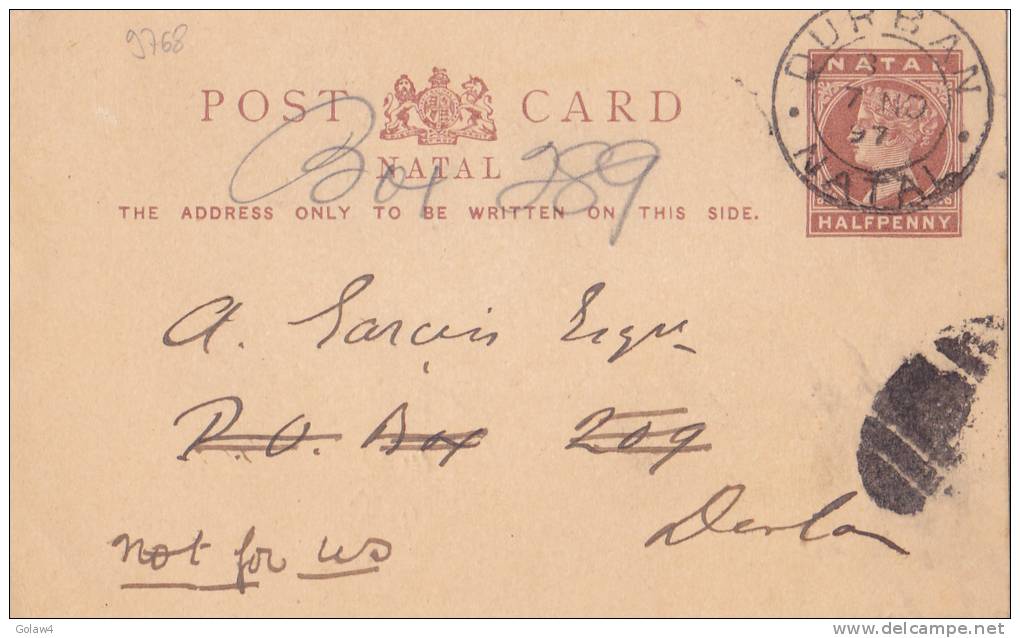 9768
DURBAN
3
7 NO
97
NATAL
NATAL
HALFPENNY
POST CARD
NATAL
Box 289
THE ADDRESS ONLY TO BE WRITTEN ON THIS SIDE.
A. Garcin Esqre
P.O. Box 209
not for us
Golaw4
delcampe.net